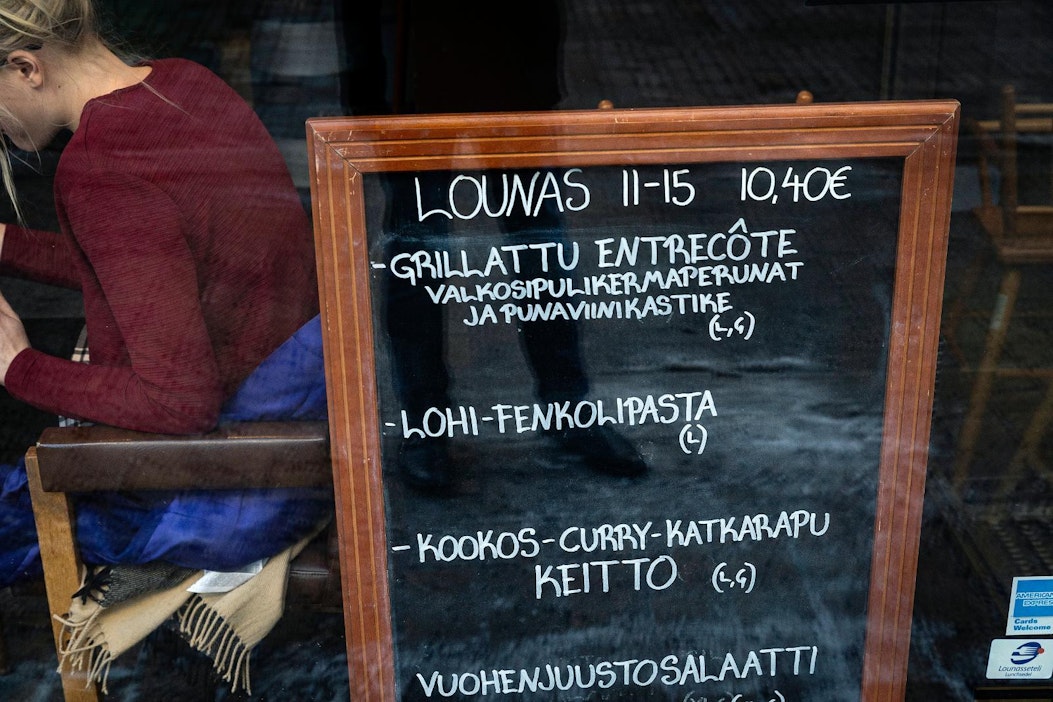 LOUNAS 11-15 10,40€
-GRILLATTU ENTRECÔTE
VALKOSIPULIKERMAPERUNAT
JA PUNAVIINIKASTIKE
(L,G)
-LOHI-FENKOLIPASTA
(L)
-KOOKOS-CURRY-KATKARAPU
KEITTO (L,G)
VUOHENJUUSTOSALAATTI
AMERICAN
EXPRESS
Cards
Welcome
Lounasseteli
Lunchsedel